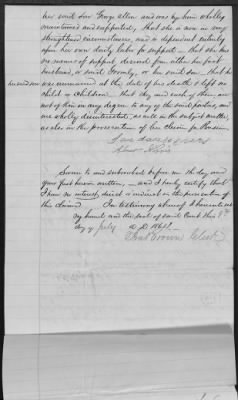 her said son George Allen and was by him wholly
maintained and supported, that she is now in very
straightened circumstances, and is dependent entirely
upon her own daily labor for support — that she has
no means of support derived from either her first
husband, or said Gromly, or her said son, that he
her said son was unmarried at the date of his death & left no
child or children that they and each of them, are
not of kin in any degree to any of the said parties, and
are wholly disinterested, as well in the subject matter,
as also in the prosecution of her claim for Pension
Sworn to and subscribed before me the day and
year first herein written, — and I hereby certify that
I have no interest, direct or indirect in the prosecution of
this claim. In testimony whereof I hereunto set
my hand and the seal of said Court this 8th
day of July A.D. 1864.
Brown Clerk